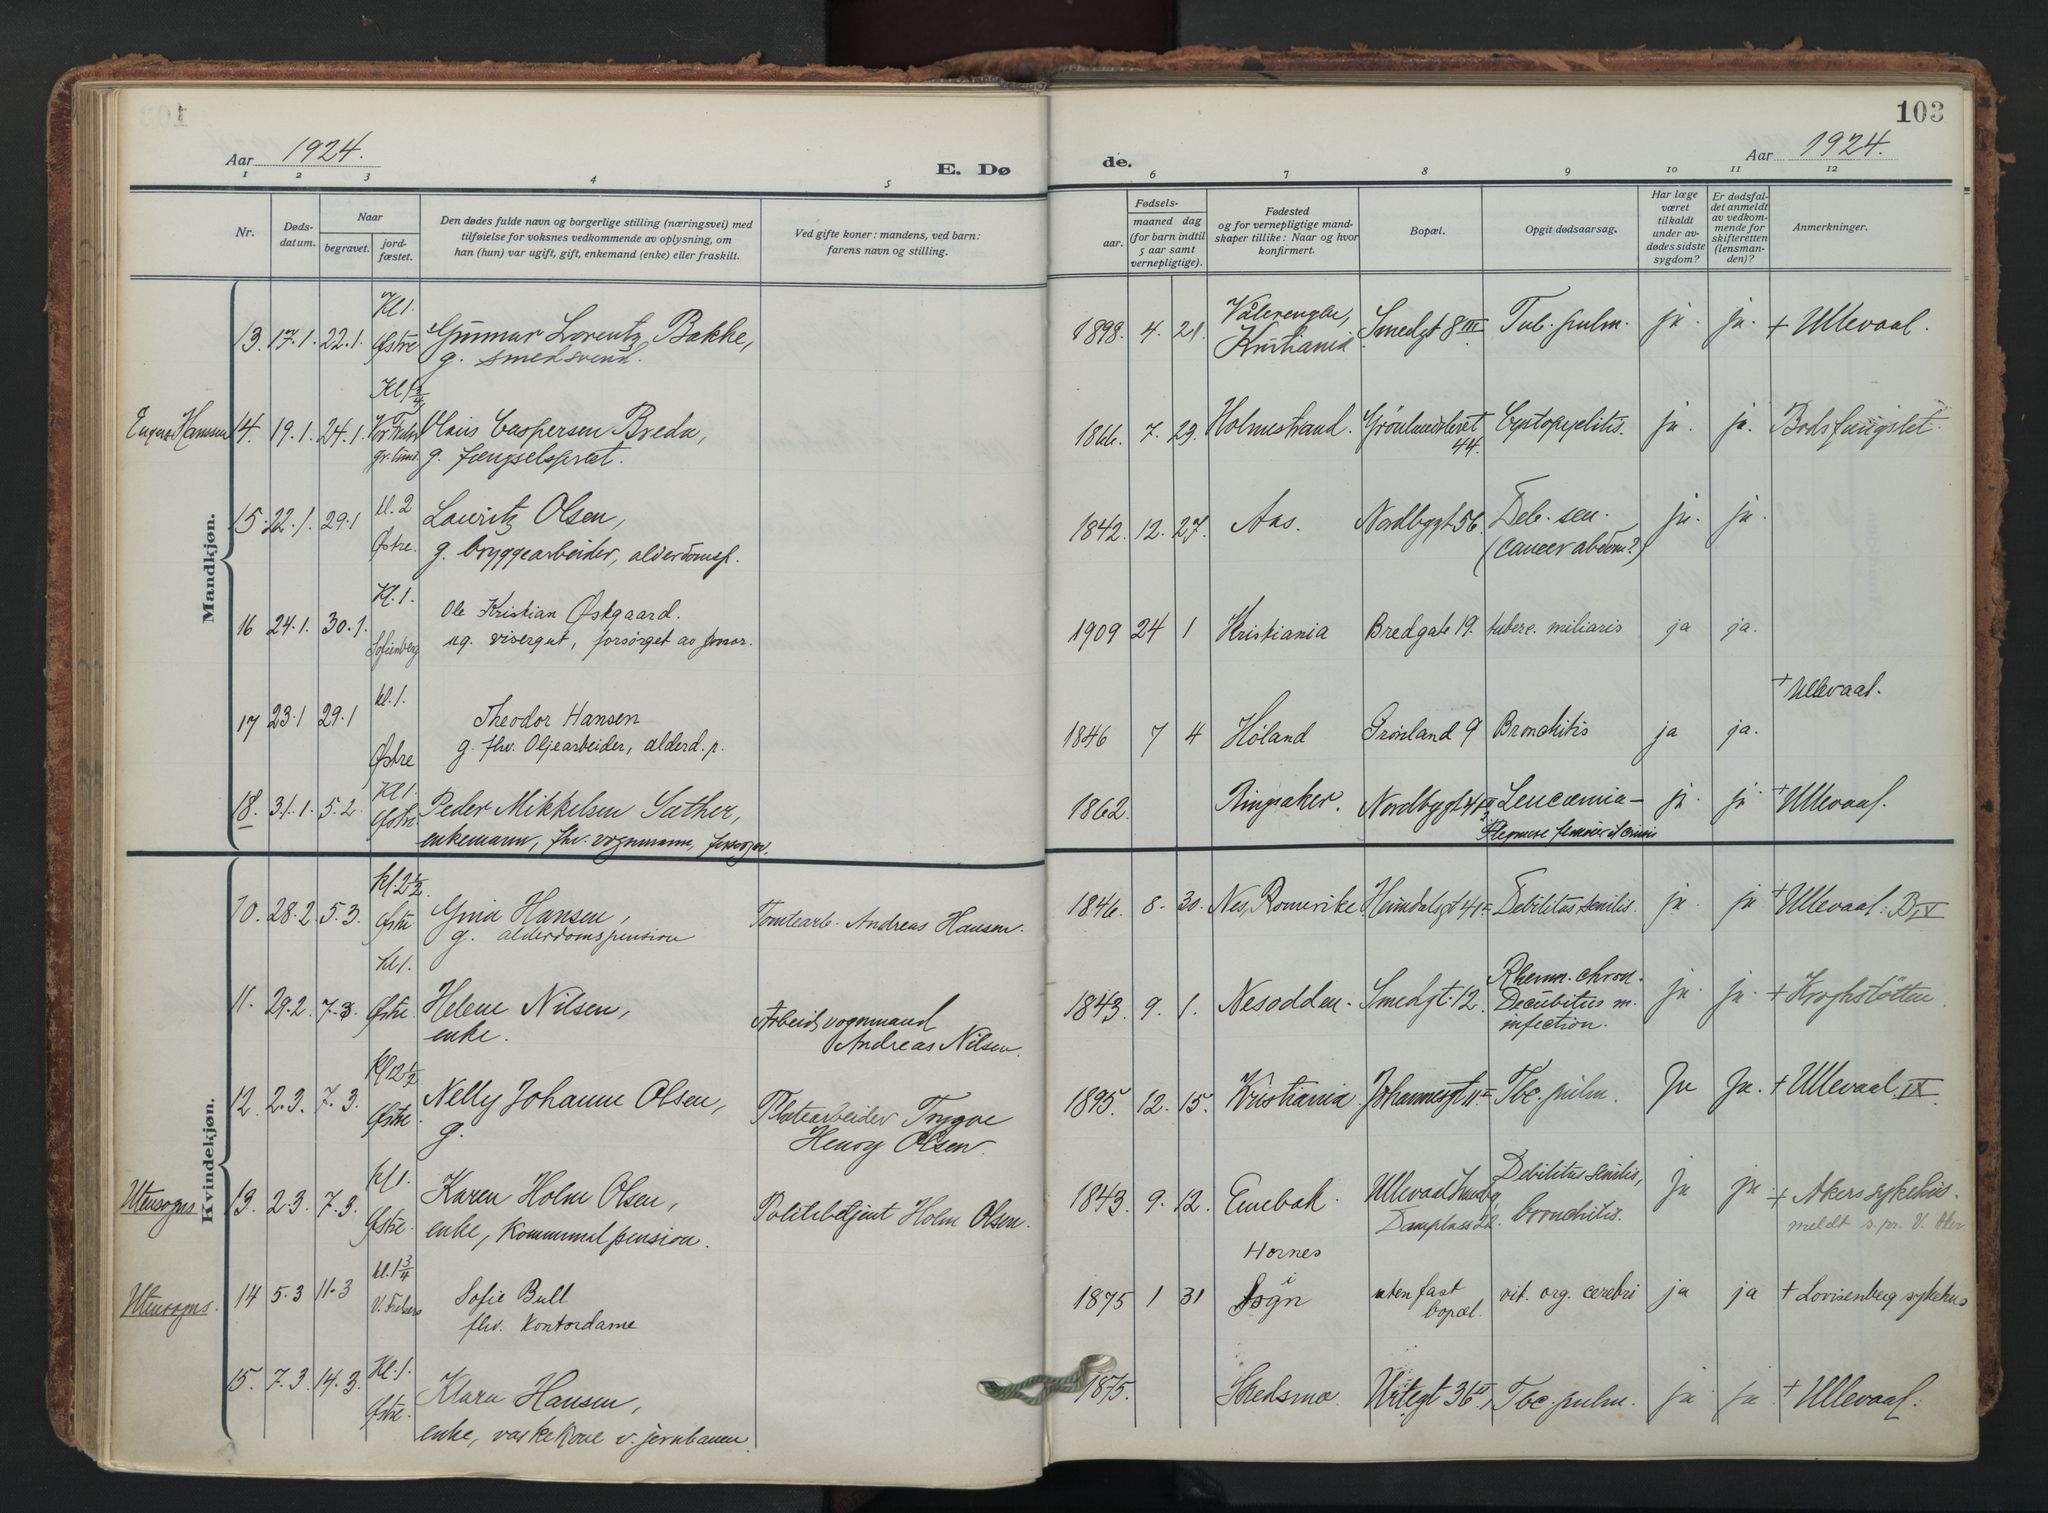 103
Aar 1924.
E. Døde.
Aar 1924.
1 2 3 4 5 6 7 8 9 10 11 12
Nr.
Døds-
datum.
Naar
begravet.
jord-
fæstet.
Den dødes fulde navn og borgerlige stilling (næringsvei) med
tilføielse for voksnes vedkommende av oplysning, om
han (hun) var ugift, gift, enkemand (enke) eller fraskilt.
Ved gifte koner: mandens, ved barn:
farens navn og stilling.
Fødsels-
aar.
maaned dag
(for barn indtil
5 aar samt
vernepligtige).
Fødested
og for vernepligtige mand-
skaper tillike: Naar og hvor
konfirmert.
Bopæl.
Opgit dødsaarsag.
Har læge
været
tilkaldt
under av-
dødes sidste
sygdom?
Er dødsfal-
det anmeldt
av vedkom-
mende for
skifteretten
(lensman-
den)?
Anmerkninger.
Mandkjøn.
13. 17.1. 22.1. Kl 1. Østre Gunnar Lorentz Bakke,
g. smedsvend.
1898. 4. 21 Vålerengen, Kristiania Smedgt 8 III Tub. pulm. ja. ja. + Ullevaal.
Hanssen 14. 19.1. 24.1. Kl 1 3/4 Vor Fr. Olaus Caspersen Breda,
g. fængselspræst.
1866. 7. 23. Holmestrand. Grønlandsleret 44. Cystopyelitis. ja. ja. Bodsfængslet.
15. 22.1. 29.1 kl. 2 Østre. Lauritz Olsen,
g. bryggearbeider, alderdomsp.
1842. 12. 27. Aas. Nordbygt 56 Deb. sen.
(cancer abdom?) ja. ja.
16 24.1. 30.1. Kl. 1. Sofienberg Ole Kristian Østgaard.
ug. visergut, forsørget av formor.
1909 24 1 Kristiania Bredgate 19. tuberc. miliaris ja ja.
17 23.1 29.1 kl. 1. Østre Theodor Hansen
g. fhv. Oljearbeider, alderd. p.
1846 7 4 Høland Grønland 9 Bronchitis ja ja. + Ullevaal.
18. 31.1. 5.2. Kl 1. Østre Peder Mikkelsen Sæther,
enkemann, fhv. vognmann,
1862. Ringsaker. Nordbygt Leucæmia – ja. ja + Ullevaal.
Kvindekjøn.
10. 28.2. 5.3. Kl. 2 1/2. Østre Gina Hansen,
g. alderdomspension
Tomtearb. Andreas Hansen.
1846. 8. 30. Nes, Romerike Heimdalsgt 41 Debilitas senilis. ja. ja + Ullevaal. B IX
11. 29.2. 7.3 Kl 1. Østre. Helene Nilsen,
enke.
Arbeidsvognmand
Andreas Nilsen.
1843. 9. 1. Nesodden. Smedgt. 12. Rheum. chron.
Decubitus m.
infection. ja. ja. + Kroghstøtten
12. 2.3. 7.3. Kl 12 1/2 Østre. Nelly Johanne Olsen,
g.
Platearbeider Trygve
Henry Olsen.
1895. 12. 15. Kristiania Johannesgt 11 II Tbc. pulm. Ja Ja. + Ullevaal. IX.
Utensogns 13. 2.3. 7.3. Kl 1. Østre. Karen Holm Olsen,
enke, kommunal pension.
Politibetjent Holm Olsen.
1843. 9. 12. Enebak. Ullevaal Haveby
Damplass 22. Debilitas senilis,
bronchitis. Ja ja. + Akers sykehus.
meldt s.pr. V. Aker
Utensogns. 14 5.3 11.3 kl. 1 3/4 V. Frelsers Sofie Bull
fhv. kontordame
1875 1 31 Hornes
i
Sogn uten fast
bopæl. vit. org. cerebri ja ja + Lovisenberg sykehus
15. 7.3. 14.3. Kl. 1. Østre. Klara Hansen,
enke, vaskekone v. jernbanen.
1875. Skedsmo Urtegt 36 II, Tbc. pulm. ja ja. + Ullevaal.